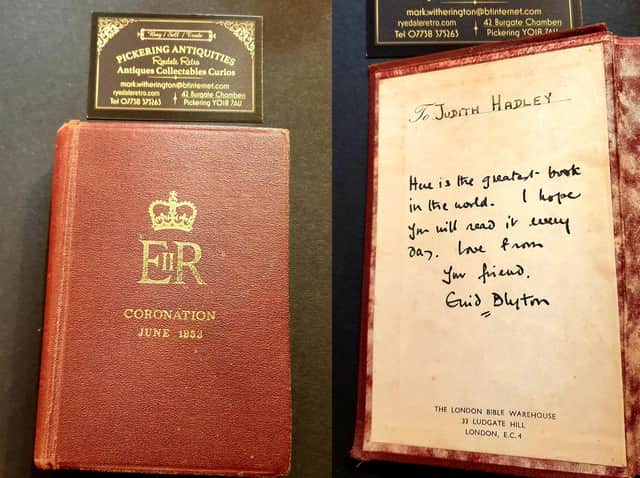 Buy / Sell / Trade
PICKERING ANTIQUITIES
Ryedale Retro
Antiques Collectables Curios
mark.witherington@btinternet.com
ryedaleretro.com
Tel 07738 375263
42 Burgate Chambers
Pickering YO18 7AU
EIIR
CORONATION
JUNE 1953
mark.witherington@btinternet.com
ryedaleretro.com
Tel 07738 375263
42 Burgate Chambers
Pickering YO18 7AU
To JUDITH HADLEY
Here is the greatest book
in the world. I hope
you will read it every
day. Love from
Your friend,
Enid Blyton
THE LONDON BIBLE WAREHOUSE
33 LUDGATE HILL
LONDON, E.C.4